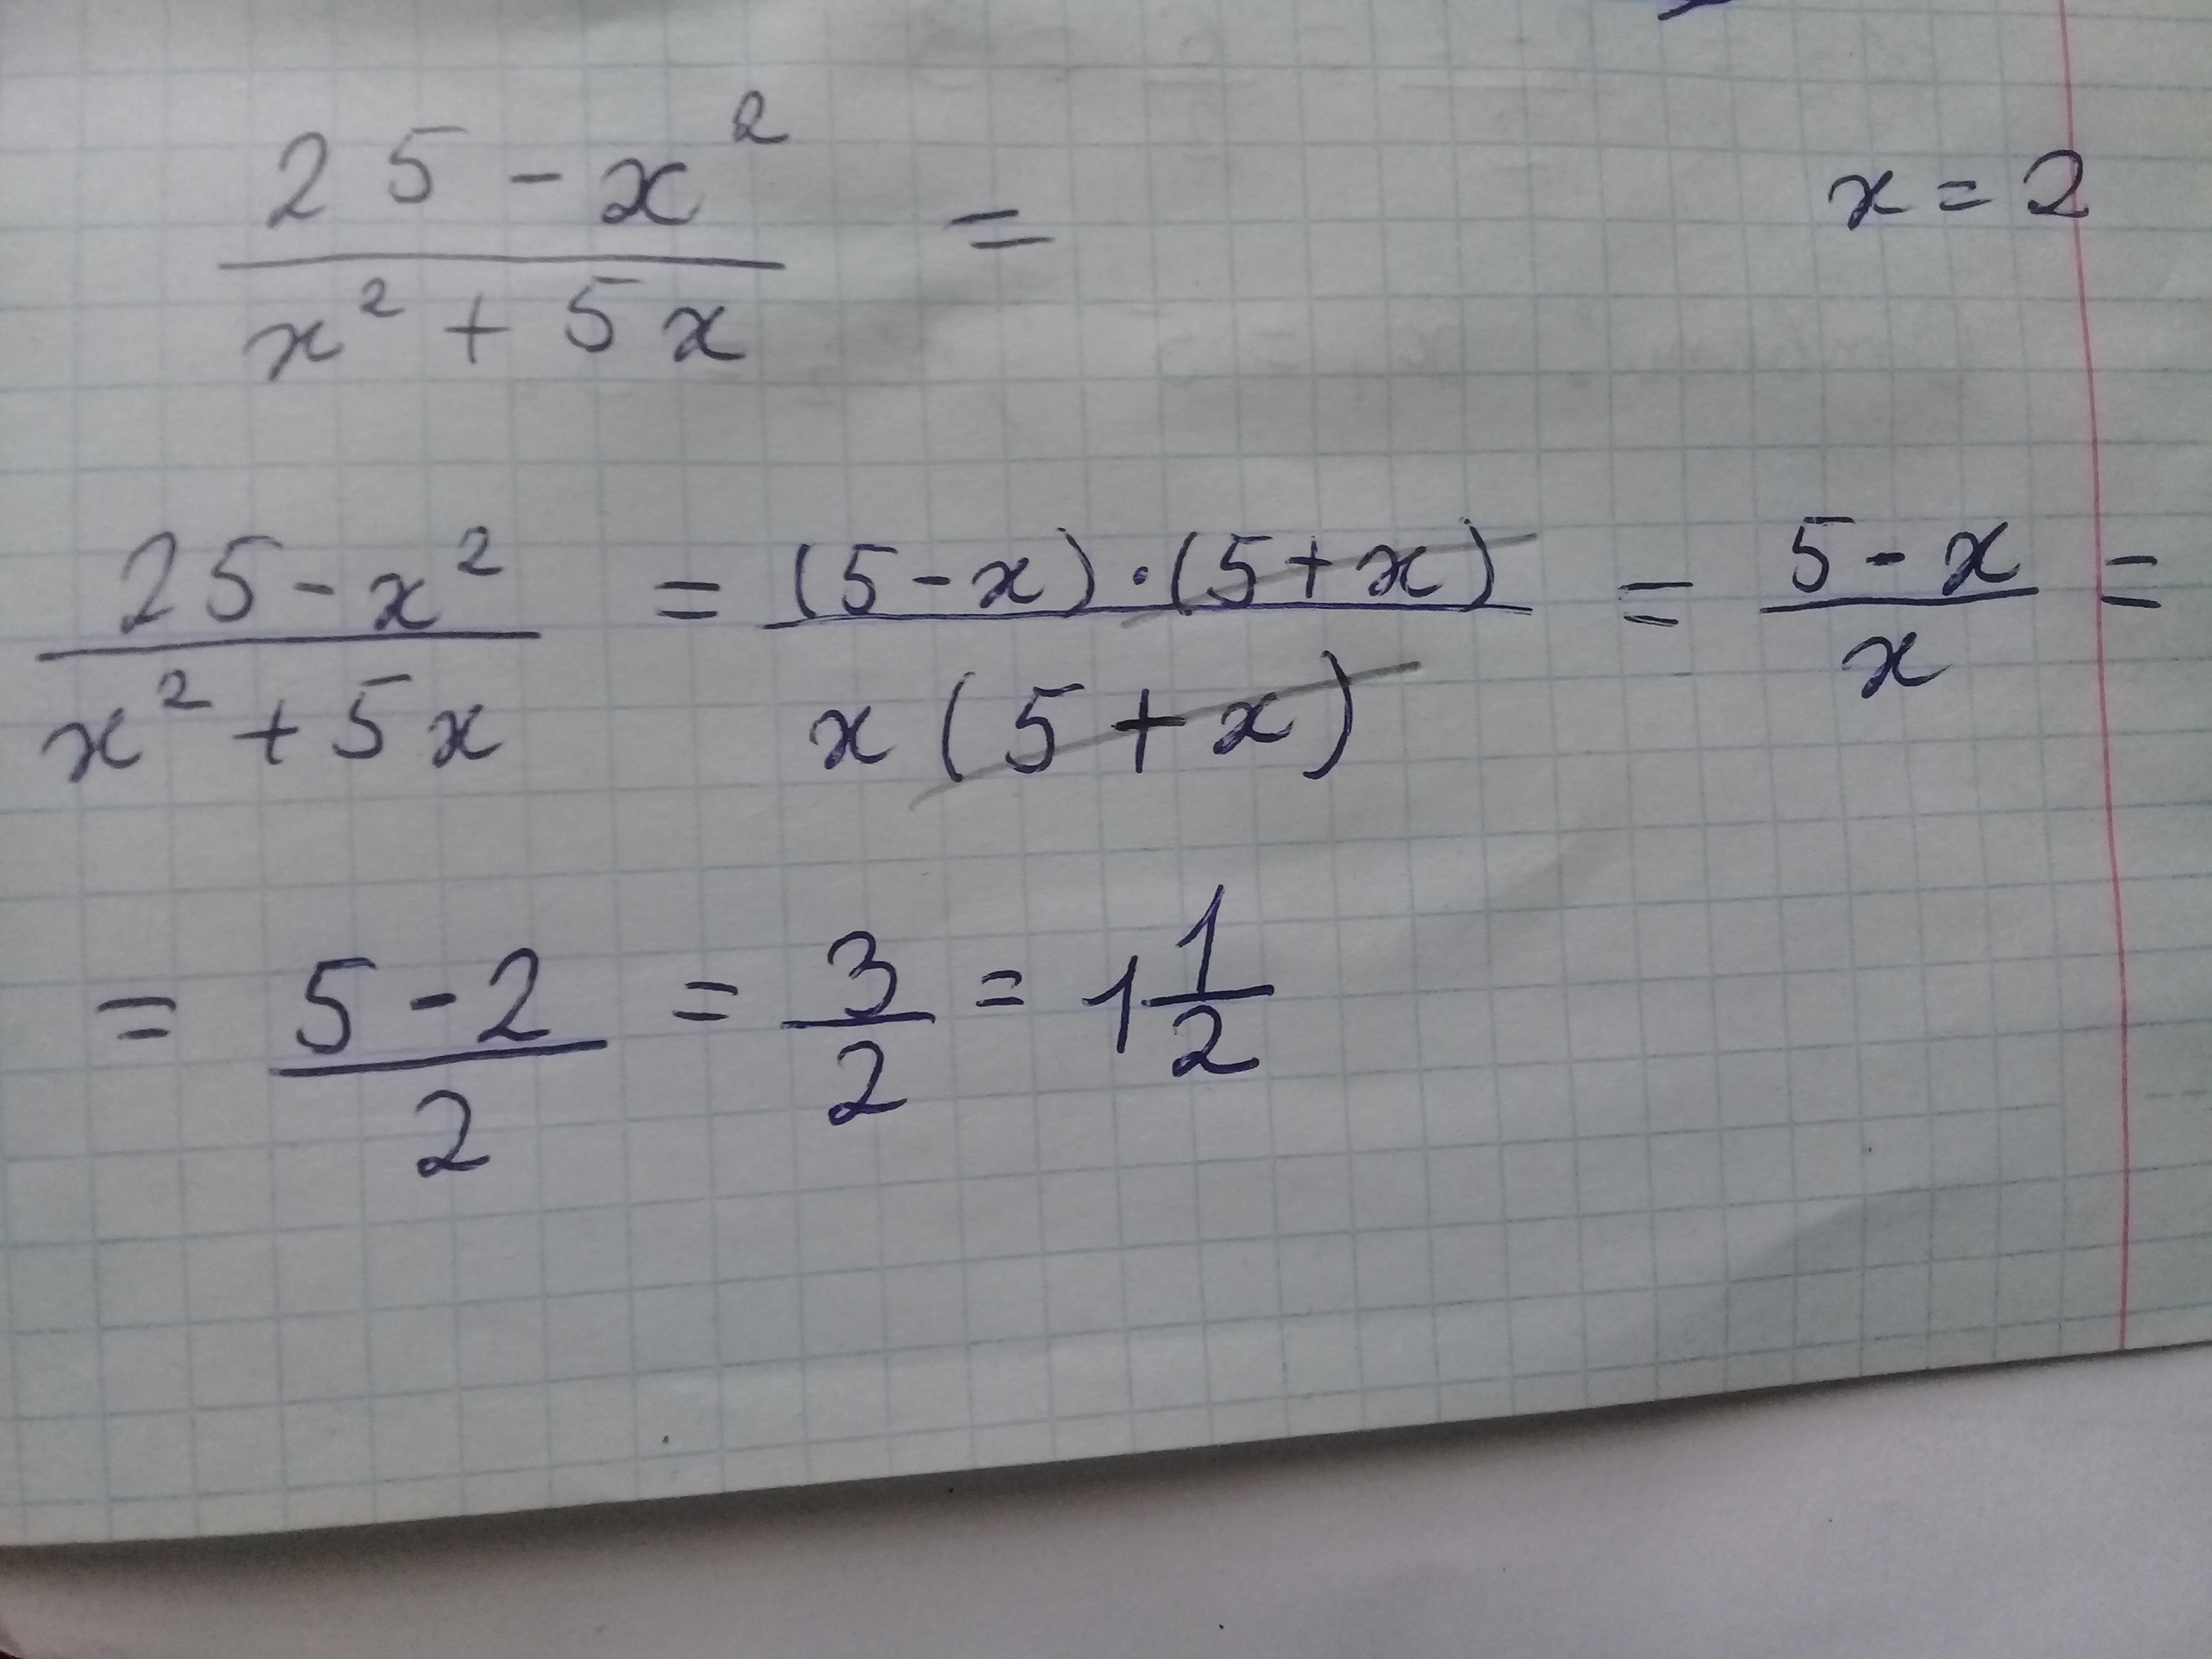 (25 - x²)/(x² + 5x) =    x = 2
(25 - x²)/(x² + 5x) = ((5 - x) · (5 + x))/(x(5 + x)) = (5 - x)/x =
= (5 - 2)/2 = 3/2 = 1 1/2